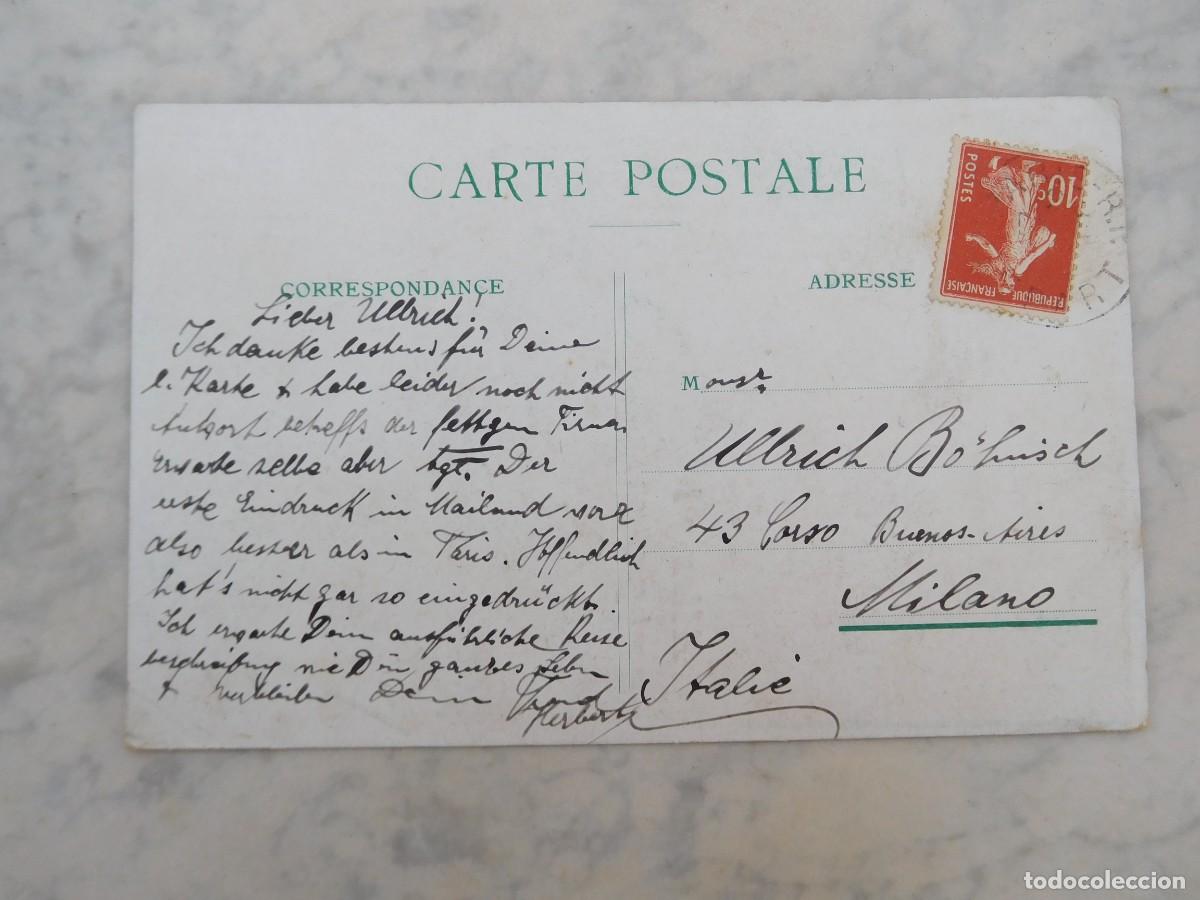 CARTE POSTALE
CORRESPONDANCE
Lieber Ullrich!
Ich danke bestens für Deine
l. Karte & habe leider noch nicht
Antwort betreffs der Firma.
Erwarte selbe aber tgl. Der
erste Eindruck in Mailand
also besser als in Paris. Hoffendlich
hat's nicht gar so eingedrückt.
Ich erwarte Dein ausführliche Reise
beschreibung wie Dein ganzes Leben
& verbleibe Dein Freund
Herbert
ADRESSE
Monsr.
Ullrich Böhnisch
43 Corso Buenos-Aires
Milano
Italie
10c
POSTES
REPUBLIQUE FRANÇAISE
todocoleccion